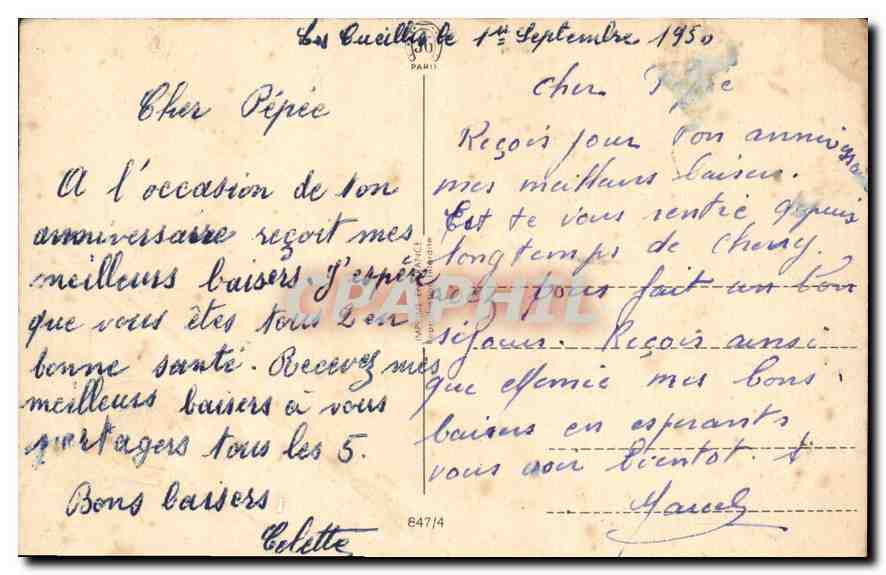 Les Cueillis le 1er Septembre 1950
PARIS
Cher Pépée
A l'occasion de ton
anniversaire reçoit mes
meilleurs baisers J'espère
que vous êtes tous 2 en
bonne santé. Recevez mes
meilleurs baisers à vous
partagers tous les 5.
Bons baisers
Colette
cher
Reçois pour ton anniversaire
mes meilleurs baisers.
Est te vous rentré depuis
longtemps de Chercy
avez vous fait un bon
séjour. Reçois ainsi
que Mémée mes bons
baisers en esperants
vous voir bientot.
Marcel
847/4
CPAPHIL